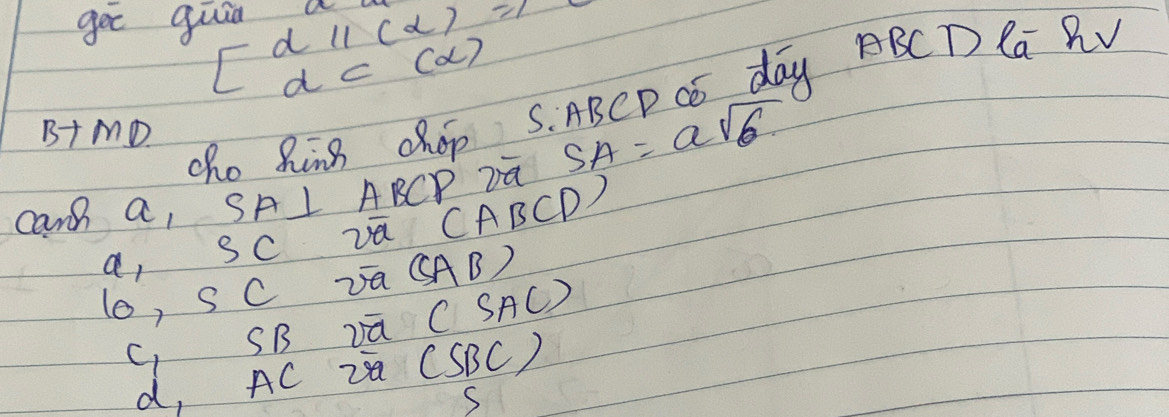 góc giữa
[ d // (α) =>
d ⊂ (α)
BTMD.
cho hình chóp S.ABCD có đáy ABCD là hv
cạnh a, SA ⊥ ABCD và SA = a√6.
a, SC và (ABCD)
b, SC và (SAB)
c, SB và (SAC)
d, AC và (SBC)
S